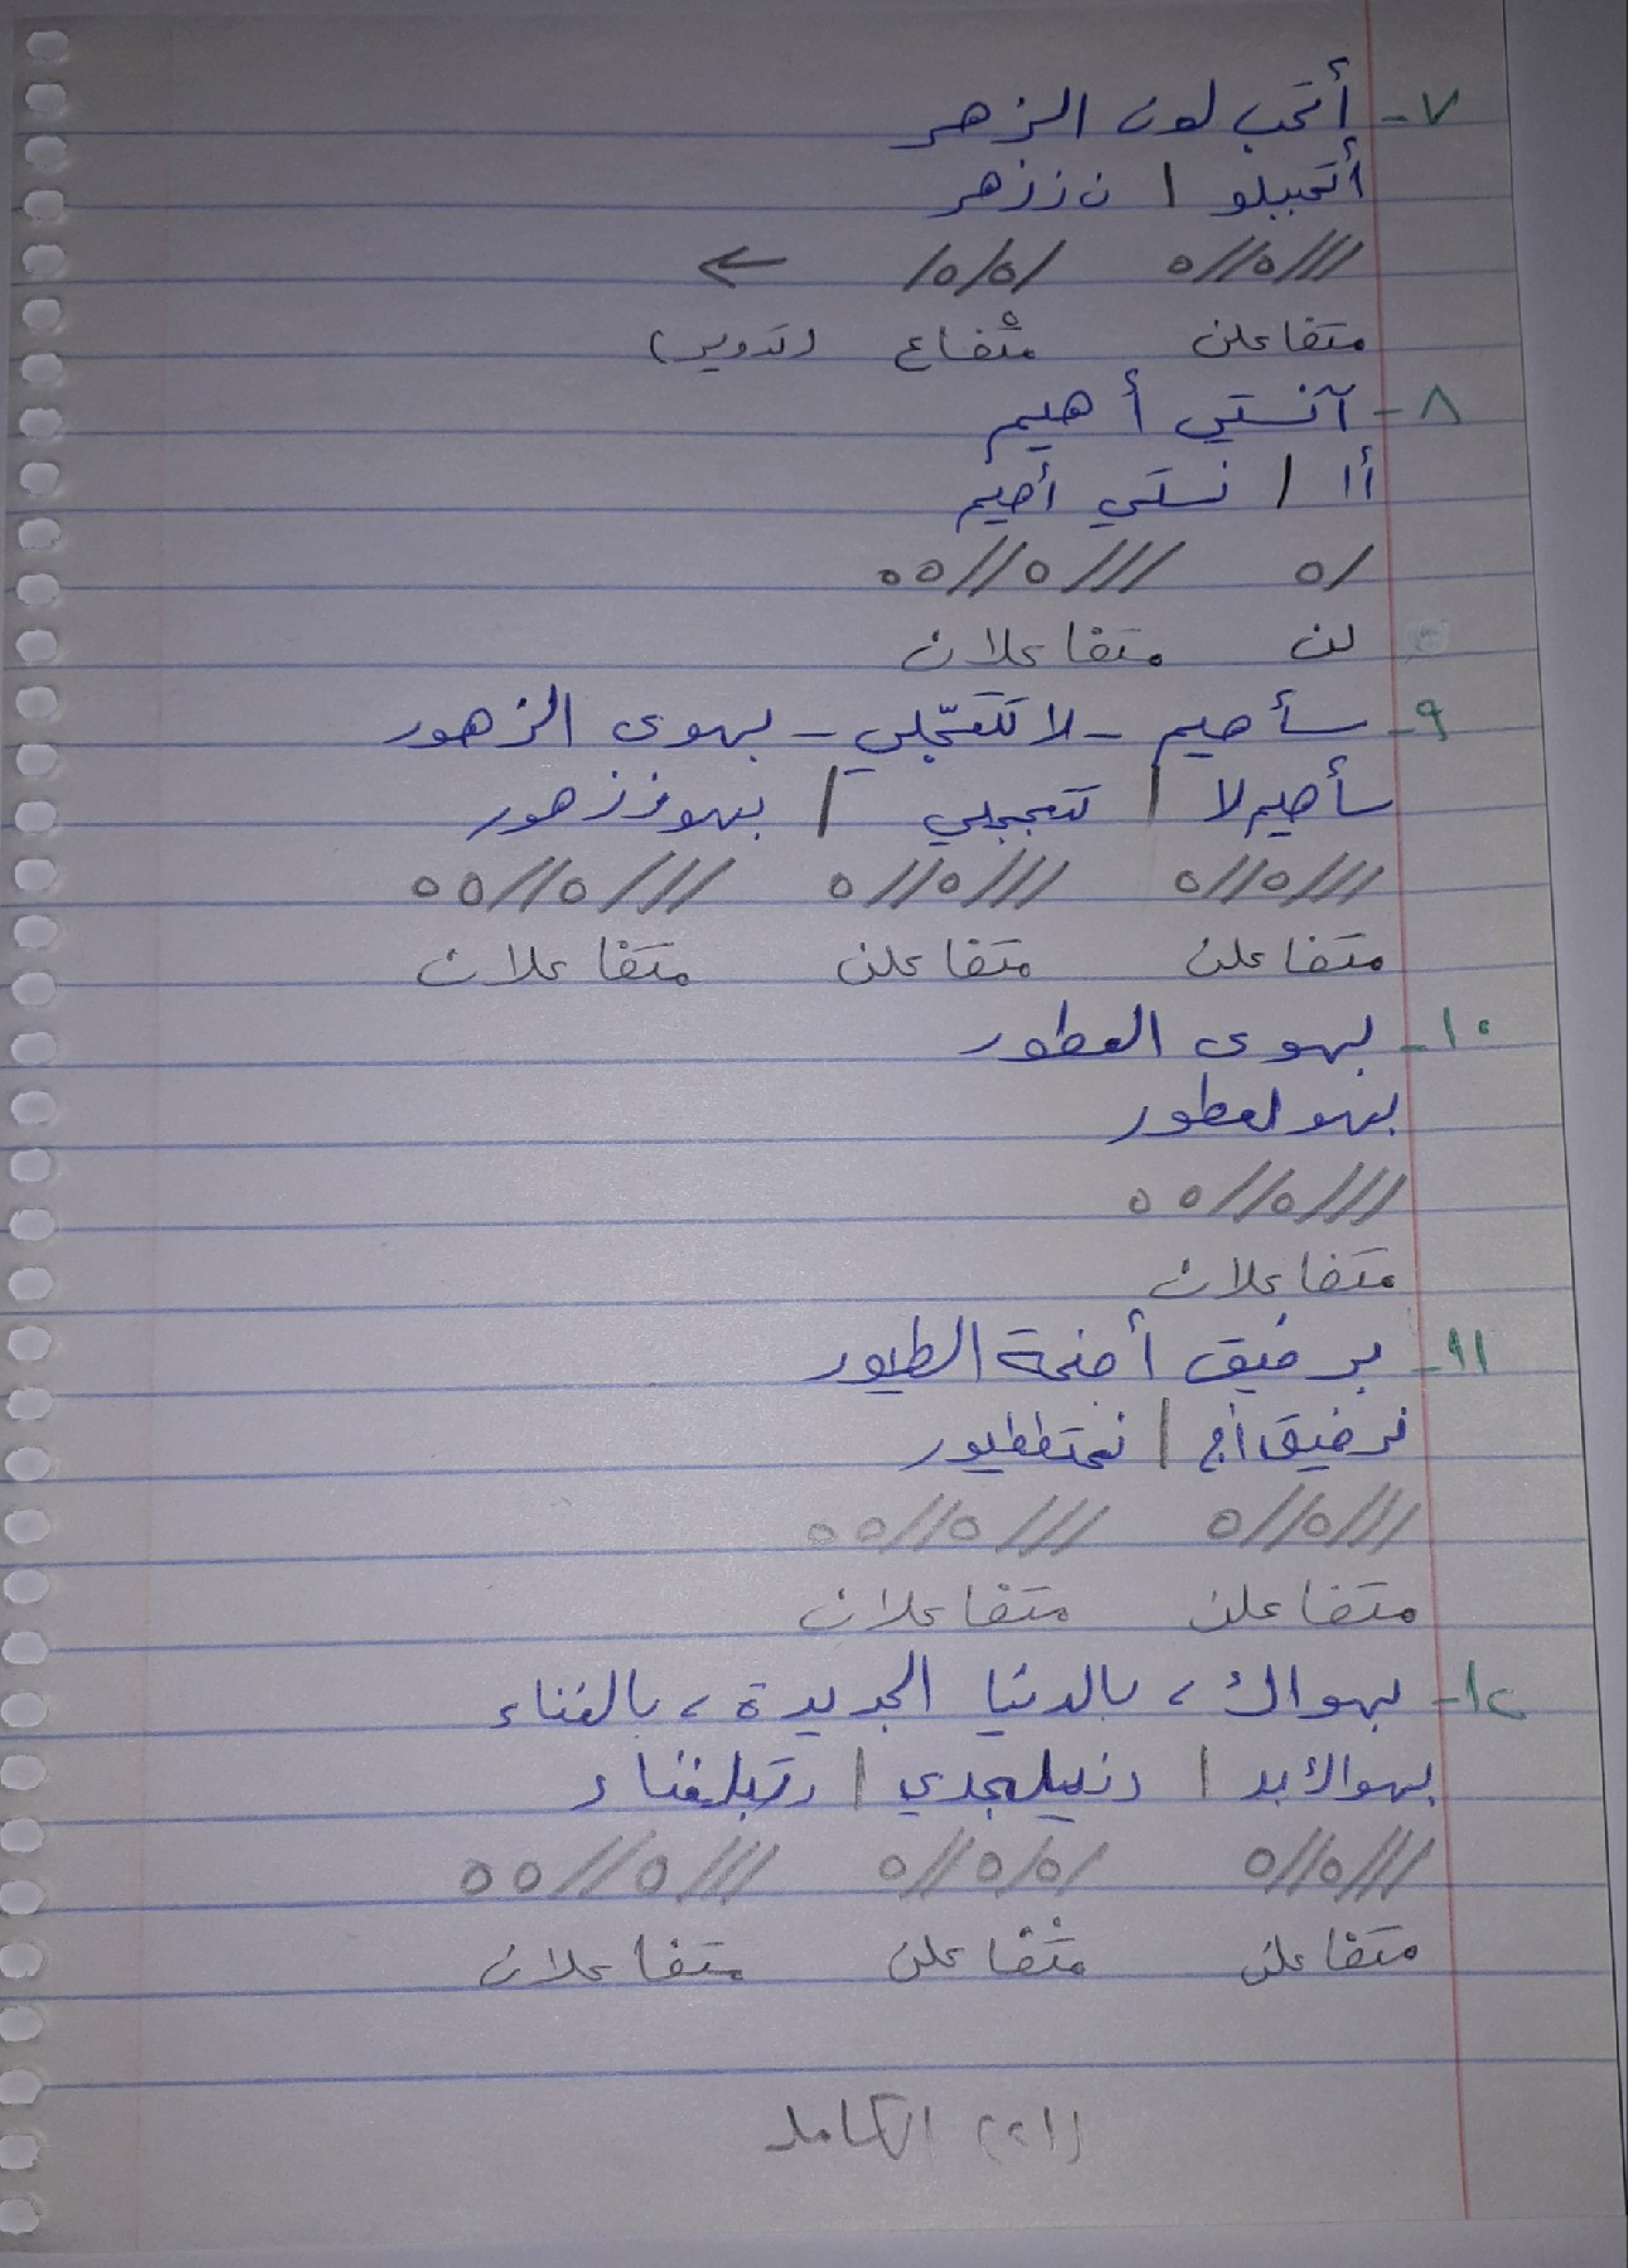 ٧- أتحب لون الزهر
أتحببلو | ن ززهر
///o//o /o/o/ ←
متفاعلن متْفاع (تدوير)
٨- آنستي أهيم
أا | نستي أهيم
/o ///o//oo
لن متفاعلان
٩- سأهيم - لا تتعجّلي - بهوى الزهور
سأهيم لا | تتعججلي | بهوززهور
///o//o ///o//o ///o//oo
متفاعلن متفاعلن متفاعلان
١٠- بهوى العطور
بهو لعطور
///o//oo
متفاعلان
١١- برفيق أجنحة الطيور
برفيق أج | نحتططيور
///o//o ///o//oo
متفاعلن متفاعلان
١٢- بهواك، بالدنيا الجديدة، بالغناء
بهواك بد | دنيلجدي | دتبلغناء
///o//o /o/o//o ///o//oo
متفاعلن متْفاعلن متفاعلان
(٢١) الكامل